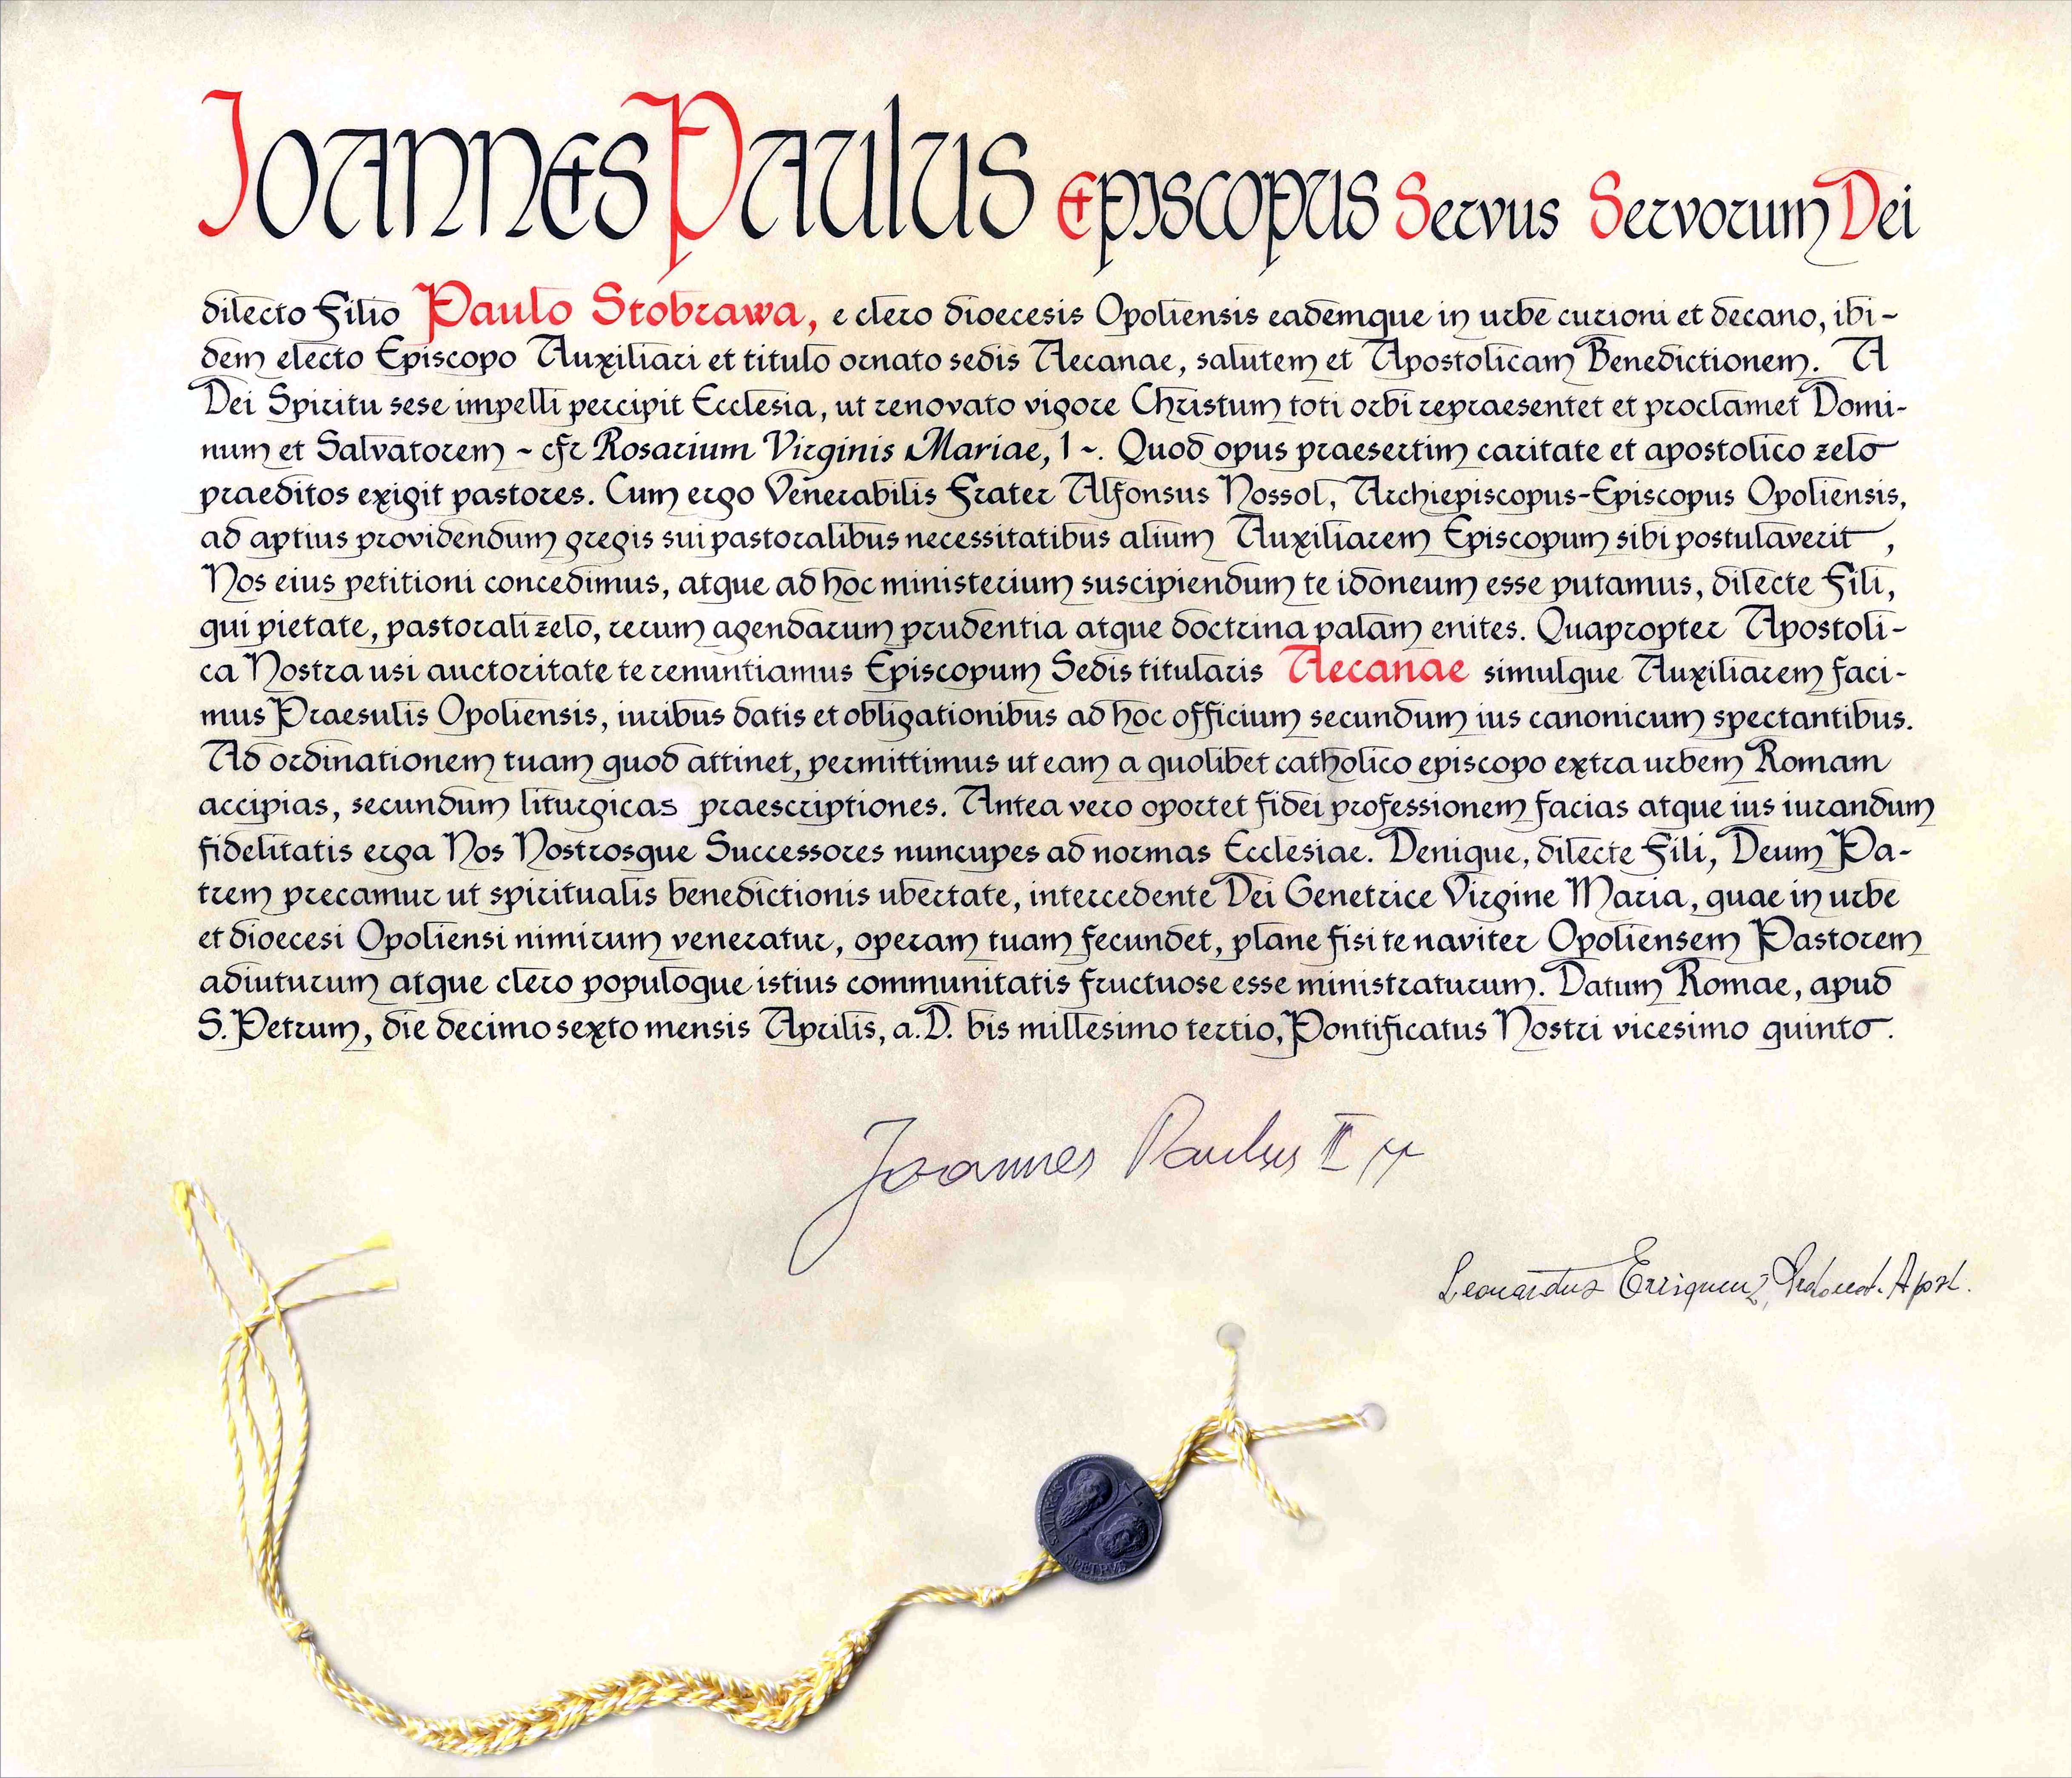 Joannes Paulus Episcopus Servus Servorum Dei
dilecto Filio Paulo Stobrawa, e clero dioecesis Opoliensis eademque in urbe curioni et decano, ibi-
dem electo Episcopo Auxiliari et titulo ornato sedis Aecanae, salutem et Apostolicam Benedictionem. A
Dei Spiritu sese impelli percipit Ecclesia, ut renovato vigore Christum toti orbi repraesentet et proclamet Domi-
num et Salvatorem ~ cfr Rosarium Virginis Mariae, 1 ~. Quod opus praesertim caritate et apostolico zelo
praeditos exigit pastores. Cum ergo Venerabilis Frater Alfonsus Nossol, Archiepiscopus-Episcopus Opoliensis,
ad aptius providendum gregis sui pastoralibus necessitatibus alium Auxiliarem Episcopum sibi postulaverit,
Nos eius petitioni concedimus, atque ad hoc ministerium suscipiendum te idoneum esse putamus, dilecte Fili,
qui pietate, pastorali zelo, rerum agendarum prudentia atque doctrina palam enites. Quapropter Apostoli-
ca Nostra usi auctoritate te renuntiamus Episcopum Sedis titularis Aecanae simulque Auxiliarem faci-
mus Praesulis Opoliensis, iuribus datis et obligationibus ad hoc officium secundum ius canonicum spectantibus.
Ad ordinationem tuam quod attinet, permittimus ut eam a quolibet catholico episcopo extra urbem Romam
accipias, secundum liturgicas praescriptiones. Antea vero oportet fidei professionem facias atque ius iurandum
fidelitatis erga Nos Nostrosque Successores nuncupes ad normas Ecclesiae. Denique, dilecte Fili, Deum Pa-
trem precamur ut spiritualis benedictionis ubertate, intercedente Dei Genetrice Virgine Maria, quae in urbe
et dioecesi Opoliensi nimirum veneratur, operam tuam fecundet, plane fisi te naviter Opoliensem Pastorem
adiuturum atque clero populoque istius communitatis fructuose esse ministraturum. Datum Romae, apud
S. Petrum, die decimo sexto mensis Aprilis, a.D. bis millesimo tertio, Pontificatus Nostri vicesimo quinto.
Joannes Paulus II
Leonardus Erriquenz, Apost.
S PETRVS